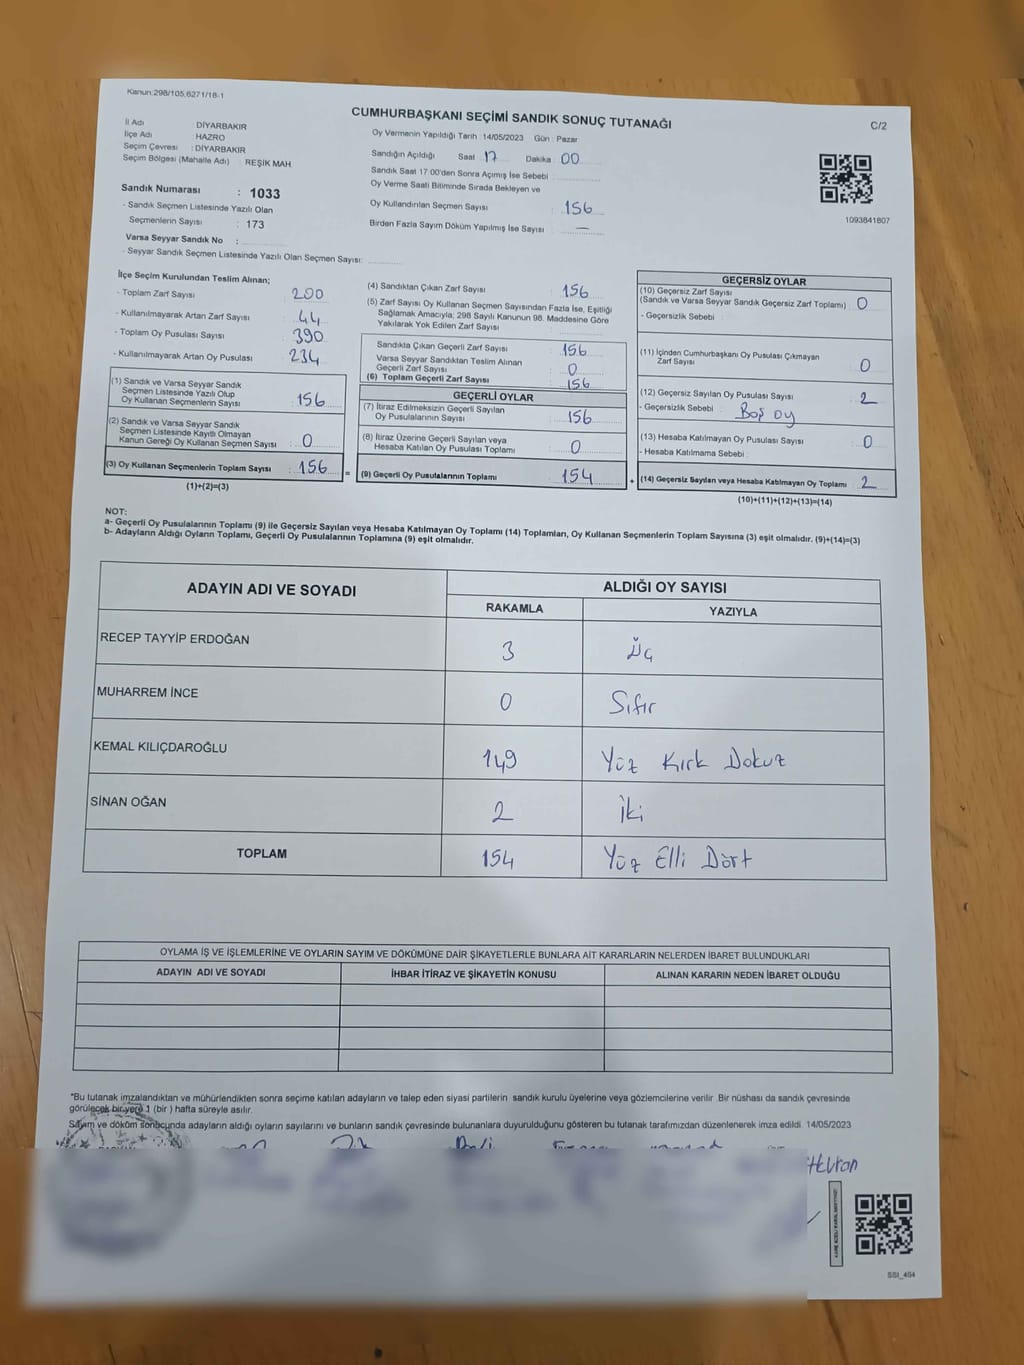 Kanun:298/105,6271/18-1
CUMHURBAŞKANI SEÇİMİ SANDIK SONUÇ TUTANAĞI
C/2
İl Adı : DİYARBAKIR
İlçe Adı : HAZRO
Seçim Çevresi : DİYARBAKIR
Seçim Bölgesi (Mahalle Adı) : REŞİK MAH
Sandık Numarası : 1033
- Sandık Seçmen Listesinde Yazılı Olan
Seçmenlerin Sayısı : 173
Varsa Seyyar Sandık No :
- Seyyar Sandık Seçmen Listesinde Yazılı Olan Seçmen Sayısı:
Oy Vermenin Yapıldığı Tarih :14/05/2023 Gün : Pazar
Sandığın Açıldığı Saat : 17 Dakika : 00
Sandık Saat 17:00'den Sonra Açımış İse Sebebi :
Oy Verme Saati Bitiminde Sırada Bekleyen ve
Oy Kullandırılan Seçmen Sayısı : 156
Birden Fazla Sayım Döküm Yapılmış İse Sayısı : —
1093841807
İlçe Seçim Kurulundan Teslim Alınan;
- Toplam Zarf Sayısı : 200
- Kullanılmayarak Artan Zarf Sayısı : 44
- Toplam Oy Pusulası Sayısı : 390
- Kullanılmayarak Artan Oy Pusulası : 234
(1) Sandık ve Varsa Seyyar Sandık
Seçmen Listesinde Yazılı Olup
Oy Kullanan Seçmenlerin Sayısı : 156
(2) Sandık ve Varsa Seyyar Sandık
Seçmen Listesinde Kayıtlı Olmayan
Kanun Gereği Oy Kullanan Seçmen Sayısı : 0
(3) Oy Kullanan Seçmenlerin Toplam Sayısı : 156 =
(1)+(2)=(3)
(4) Sandıktan Çıkan Zarf Sayısı : 156
(5) Zarf Sayısı Oy Kullanan Seçmen Sayısından Fazla İse, Eşitliği
Sağlamak Amacıyla; 298 Sayılı Kanunun 98. Maddesine Göre
Yakılarak Yok Edilen Zarf Sayısı
Sandıkta Çıkan Geçerli Zarf Sayısı : 156
Varsa Seyyar Sandıktan Teslim Alınan
Geçerli Zarf Sayısı : 0
(6) Toplam Geçerli Zarf Sayısı : 156
GEÇERLİ OYLAR
(7) İtiraz Edilmeksizin Geçerli Sayılan
Oy Pusulalarının Sayısı : 156
(8) İtiraz Üzerine Geçerli Sayılan veya
Hesaba Katılan Oy Pusulası Toplamı : 0
(9) Geçerli Oy Pusulalarının Toplamı : 154 +
GEÇERSİZ OYLAR
(10) Geçersiz Zarf Sayısı
(Sandık ve Varsa Seyyar Sandık Geçersiz Zarf Toplamı) : 0
- Geçersizlik Sebebi :
(11) İçinden Cumhurbaşkanı Oy Pusulası Çıkmayan
Zarf Sayısı : 0
(12) Geçersiz Sayılan Oy Pusulası Sayısı : 2
- Geçersizlik Sebebi : Boş oy
(13) Hesaba Katılmayan Oy Pusulası Sayısı : 0
- Hesaba Katılmama Sebebi :
(14) Geçersiz Sayılan veya Hesaba Katılmayan Oy Toplamı : 2
(10)+(11)+(12)+(13)=(14)
NOT:
a- Geçerli Oy Pusulalarının Toplamı (9) ile Geçersiz Sayılan veya Hesaba Katılmayan Oy Toplamı (14) Toplamları, Oy Kullanan Seçmenlerin Toplam Sayısına (3) eşit olmalıdır. (9)+(14)=(3)
b- Adayların Aldığı Oyların Toplamı, Geçerli Oy Pusulalarının Toplamına (9) eşit olmalıdır.
ADAYIN ADI VE SOYADI
ALDIĞI OY SAYISI
RAKAMLA YAZIYLA
RECEP TAYYİP ERDOĞAN 3 Üç
MUHARREM İNCE 0 Sıfır
KEMAL KILIÇDAROĞLU 149 Yüz Kırk Dokuz
SİNAN OĞAN 2 İki
TOPLAM 154 Yüz Elli Dört
OYLAMA İŞ VE İŞLEMLERİNE VE OYLARIN SAYIM VE DÖKÜMÜNE DAİR ŞİKAYETLERLE BUNLARA AİT KARARLARIN NELERDEN İBARET BULUNDUKLARI
ADAYIN ADI VE SOYADI İHBAR İTİRAZ VE ŞİKAYETİN KONUSU ALINAN KARARIN NEDEN İBARET OLDUĞU
*Bu tutanak imzalandıktan ve mühürlendikten sonra seçime katılan adayların ve talep eden siyasi partilerin sandık kurulu üyelerine veya gözlemcilerine verilir. Bir nüshası da sandık çevresinde
görülecek bir yere 1 (bir ) hafta süreyle asılır.
Sayım ve döküm sonucunda adayların aldığı oyların sayılarını ve bunların sandık çevresinde bulunanlara duyurulduğunu gösteren bu tutanak tarafımızdan düzenlenerek imza edildi. 14/05/2023
SSI_454